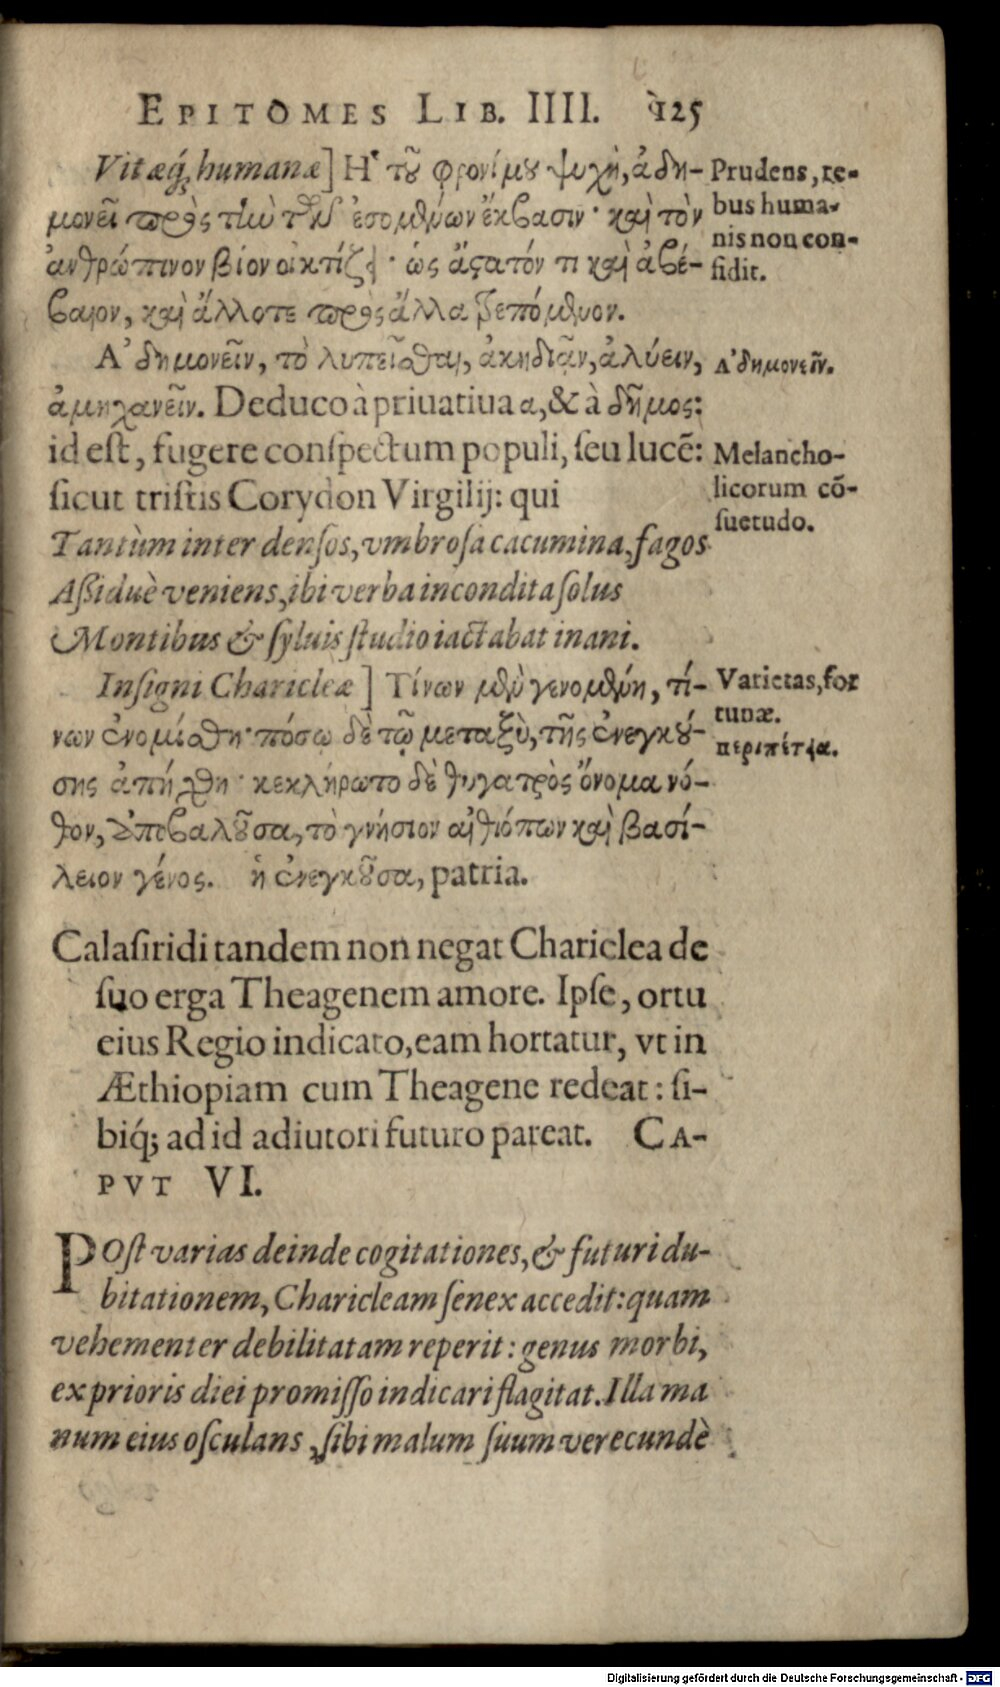 EPITOMES LIB. IIII. 125
Vitæq́; humanæ] Ἡ τοῦ φρονίμου ψυχὴ, ἀδη-
μονεῖ πρὸς τὴν τῶν ἐσομένων ἔκβασιν· καὶ τὸν
ἀνθρώπινον βίον οἰκτίζει· ὡς ἄστατόν τι καὶ ἀβέ-
βαιον, καὶ ἄλλοτε πρὸς ἄλλα ῥεπόμενον.
Ἀδημονεῖν, τὸ λυπεῖσθαι, ἀκηδιᾶν, ἀλύειν,
ἀμηχανεῖν. Deduco à priuatiua α, & à δῆμος:
id est, fugere conspectum populi, seu lucē:
sicut tristis Corydon Virgilij: qui
Tantùm inter densos, vmbrosa cacumina, fagos
Aßiduè veniens, ibi verba incondita solus
Montibus & syluis studio iactabat inani.
Insigni Charicleæ] Τίνων μὲν γενομένη, τί-
νων ἐνομίσθη· πόσῳ δὲ τῷ μεταξὺ, τῆς ἐνεγκού-
σης ἀπήχθη· κεκλήρωτο δὲ θυγατρὸς ὄνομα νό-
θον, ἀποβαλοῦσα, τὸ γνήσιον αἰθιόπων καὶ βασί-
λειον γένος. ἡ ἐνεγκοῦσα, patria.
Calasiridi tandem non negat Chariclea de
suo erga Theagenem amore. Ipse, ortu
eius Regio indicato, eam hortatur, vt in
Æthiopiam cum Theagene redeat: si-
biq́; ad id adiutori futuro pareat. CA-
PVT VI.
POst varias deinde cogitationes, & futuri du-
bitationem, Charicleam senex accedit: quam
vehementer debilitatam reperit: genus morbi,
ex prioris diei promisso indicari flagitat. Illa ma
num eius osculans, sibi malum suum verecundè
Prudens, re-
bus huma-
nis non con-
fidit.
Ἀδημονεῖν.
Melancho-
licorum cō-
suetudo.
Varietas, for
tunæ.
περιπέτεια.
Digitalisierung gefördert durch die Deutsche Forschungsgemeinschaft - DFG